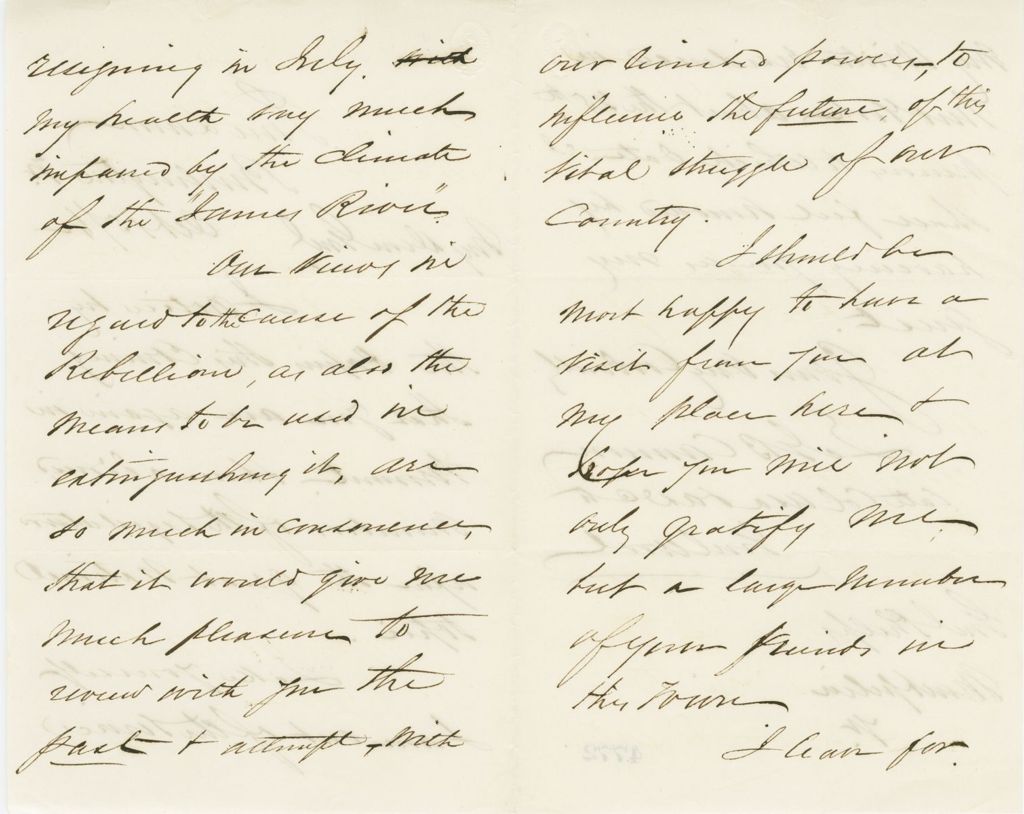 resigning in July. with
my health very much
impaired by the climate
of the "James River".
Our views in
regard to the cause of the
Rebellion, as also the
means to be used in
extinguishing it, are
so much in consonence,
that it would give me
much pleasure to
review with you the
past & attempt, with
our limited powers, to
influence the future, of this
vital struggle of our
Country.
I should be
most happy to have a
visit from you at
my place here &
hope you will not
only gratify me
but a large number
of your friends in
this Town
I leave for